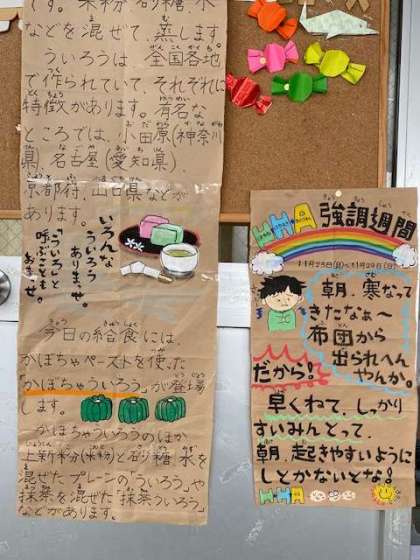 です。米粉、砂糖、水
などを混ぜて、蒸します。
ういろうは、全国各地
で作られていて、それぞれに
特徴があります。有名な
ところでは、小田原(神奈川
県)、名古屋(愛知県)、
京都府、山口県などが
あります。
いろんな
ういろう
ありませ。
"ういろと
呼ぶことも
ありませ。
今日の給食には、
かぼちゃペーストを使った
「かぼちゃういろう」が登場
します。
かぼちゃういろうのほか
上新粉(米粉)と砂糖、水を
混ぜたプレーンの「ういろう」や
抹茶を混ぜた「抹茶ういろう」
などがあります。
HHA強調週間
11月23日(月)〜11月29日(日)
朝、寒なって
きたなぁ〜
布団から
出られへん
やんか。
だから!
早くねて、しっかり
すいみんとって、
朝、起きやすいように
しとかないとな!
HHA